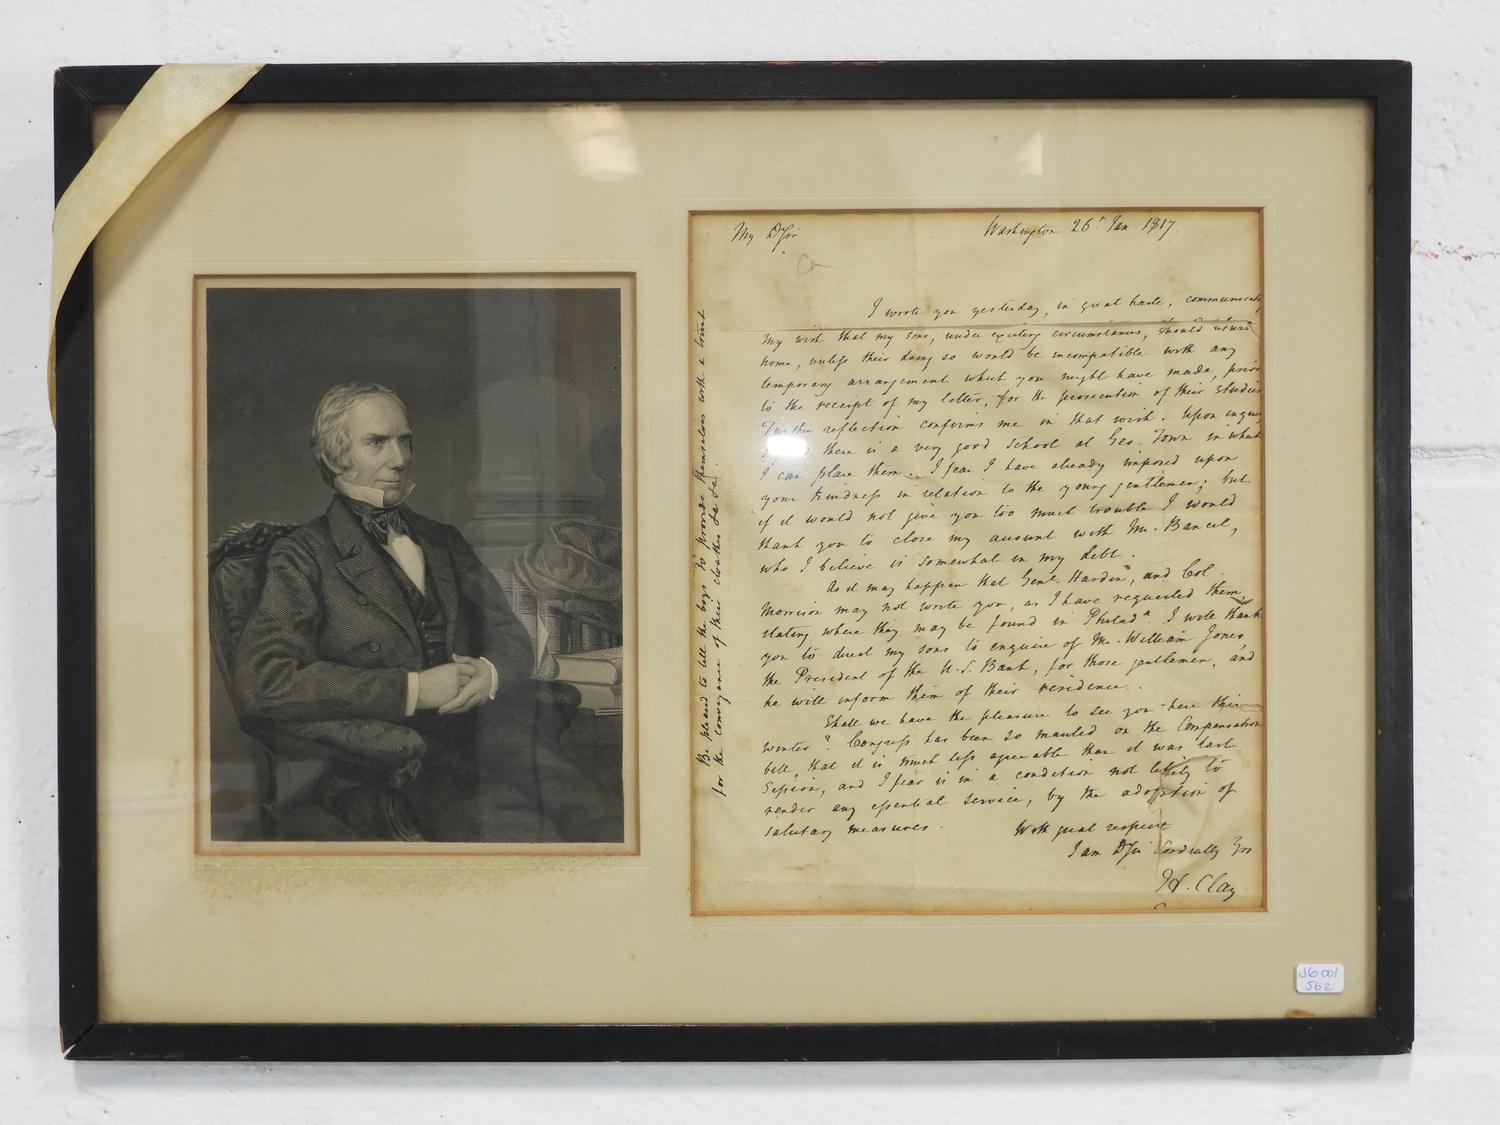 My D Sir
Washington 26t Jan. 1817.
I wrote you yesterday, in great haste, communicatg
my wish that my sons, under existing circumstances, should return
home, unless their doing so would be incompatible with any
temporary arrangement which you might have made, prior
to the receipt of my letter, for the prosecution of their studies
Further reflection confirms me in that wish. Upon
there is a very good school at Geo. Town in which
I can place them. I fear I have already imposed upon
your kindness in relation to the young gentlemen; but
if it would not give you too much trouble I would
thank you to close my account with Mr. Bancel,
who I believe is somewhat in my debt.
As it may happen that Genl. Hardin, and Col.
Morrison may not write you, as I have requested them,
stating where they may be found in Philada. I will thank
you to direct my sons to enquire of Mr. William Jones,
the President of the U.S. Bank, for those gentlemen, and
he will inform them of their residence.
Shall we have the pleasure to see you here this
winter? Congress has been so mauled on the Compensation
bill, that it is much less agreeable than it was last
Session, and I fear is in a condition not likely to
render any essential service, by the adoption of
salutary measures.
With great respect
I am D Sir Cordially Yrs
H. Clay
Be pleased to tell the boys to provide themselves with a trunk
for the conveyance of their cloathes &c &c.
J6001
562